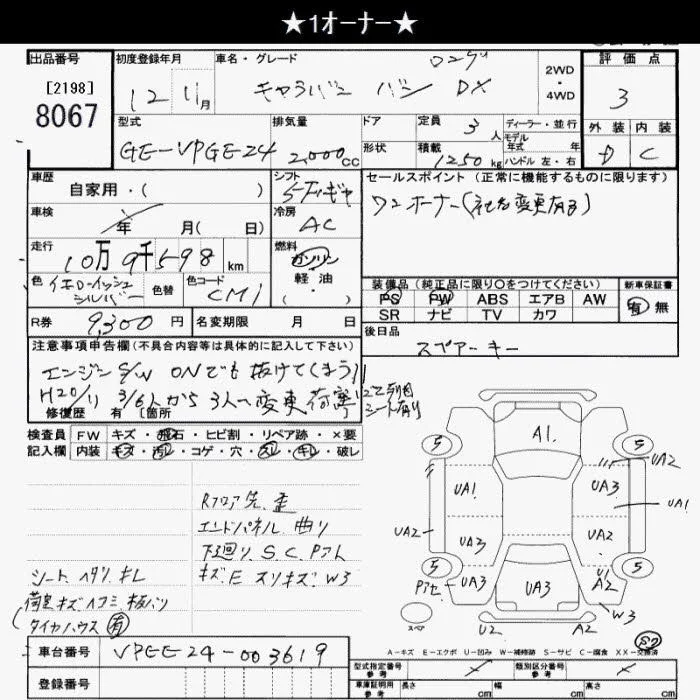 ★1オーナー★
出品番号 初度登録年月 車名・グレード ロング 2WD・4WD 評価点
[2198] 8067 12 11月 キャラバン バン DX 3
型式 排気量 ドア 定員 3人 ディーラー・並行 外装 内装
GE-VPGE24 2,000cc 形状 積載 1250kg モデル年式 年 D C
ハンドル 左・右
車歴 自家用・( ) シフト 5 セールスポイント(正常に機能するものに限ります)
車検 年 月( 日) 冷房 AC ワンオーナー(社名変更有る)
走行 10万9千598km 燃料 ガソリン・軽油
( ・ )
色 イエローイッシュシルバー 色替 色コード CM1 装備品(純正品に限り○をつけてください) 新車保証書
PS PW ABS エアB AW 有 無
SR ナビ TV カワ
R券 9,300円 名変期限 月 日 後日品
スペアーキー
注意事項申告欄(不具合内容等は具体的に記入して下さい)
エンジンS/W ONでも抜けてしまう!!
H20/11 3/6人から3人へ変更 荷室に シート有り
修復歴 有 [箇所
検査員 FW キズ・飛石・ヒビ割・リペア跡・×要
記入欄 内装 キズ・汚れ・コゲ・穴・スレ・キレ・破レ
Rフロア先、歪
エンドパネル 曲り
下廻り S.C.Pアト
キズ、E スリキズ、W3
シート ヘタリ キレ
荷室キズ ヘコミ 板バリ
タイヤハウス 有
A1.
5 5
UA2
UA1 UA3
UA1
UA2 UA2
UA3 U1
5 5
Pアセ UA3 UA3 A2
W3
スペア U2 A2
S7
A-キズ E-エクボ U-凹み W-補修跡 S-サビ C-腐食 XX-交換済
車台番号 VPGE24-003619
登録番号
型式指定番号 参考 類別区分番号 参考
車庫証明用 参考 長さ cm 幅 cm 高さ cm